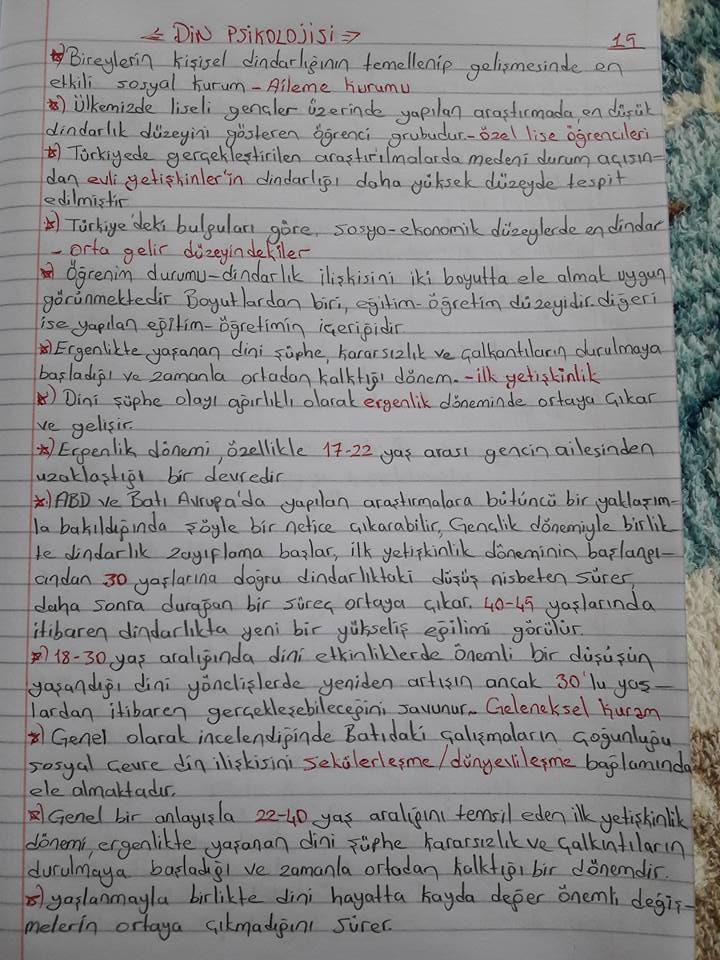 ← DİN PSİKOLOJİSİ → 19
*) Bireylerin kişisel dindarlığının temellenip gelişmesinde en
etkili sosyal kurum - Aileme kurumu
*) Ülkemizde liseli gençler üzerinde yapılan araştırmada, en düşük
dindarlık düzeyini gösteren öğrenci grubudur. - özel lise öğrencileri
*) Türkiyede gerçekleştirilen araştırılmalarda medeni durum açısın-
dan evli yetişkinler'in dindarlığı daha yüksek düzeyde tespit
edilmiştir
*) Türkiye'deki bulguları göre, sosyo-ekonomik düzeylerde en dindar
- orta gelir düzeyindekiler
*) Öğrenim durumu-dindarlık ilişkisini iki boyutta ele almak uygun
görünmektedir Boyutlardan biri, eğitim-öğretim düzeyidir. diğeri
ise yapılan eğitim-öğretimin içeriğidir
*) Ergenlikte yaşanan dini şüphe, kararsızlık ve çalkantıların durulmaya
başladığı ve zamanla ortadan kalktığı dönem. - ilk yetişkinlik
*) Dini şüphe olayı ağırlıklı olarak ergenlik döneminde ortaya çıkar
ve gelişir.
*) Ergenlik dönemi, özellikle 17-22 yaş arası gencin ailesinden
uzaklaştığı bir devredir
*) ABD ve Batı Avrupa'da yapılan araştırmalara bütüncü bir yaklaşım-
la bakıldığında şöyle bir netice çıkarabilir, Gençlik dönemiyle birlik
te dindarlık zayıflama başlar, ilk yetişkinlik döneminin başlangı-
cından 30 yaşlarına doğru dindarlıktaki düşüş nisbeten sürer,
daha sonra durağan bir süreç ortaya çıkar. 40-45 yaşlarında
itibaren dindarlıkta yeni bir yükseliş eğilimi görülür.
*) 18-30 yaş aralığında dini etkinliklerde önemli bir düşüşün
yaşandığı dini yönelişlerde yeniden artışın ancak 30'lu yaş-
lardan itibaren gerçekleşebileceğini savunur. - Geleneksel Kuram
*) Genel olarak incelendiğinde Batıdaki çalışmaların çoğunluğu
sosyal çevre din ilişkisini sekülerleşme/dünyevileşme bağlamında
ele almaktadır.
*) Genel bir anlayışla 22-40 yaş aralığını temsil eden ilk yetişkinlik
dönemi, ergenlikte yaşanan dini şüphe kararsızlık ve çalkıntıların
durulmaya başladığı ve zamanla ortadan kalktığı bir dönemdir.
*) yaşlanmayla birlikte dini hayatta kayda değer önemli değiş-
melerin ortaya çıkmadığını sürer.